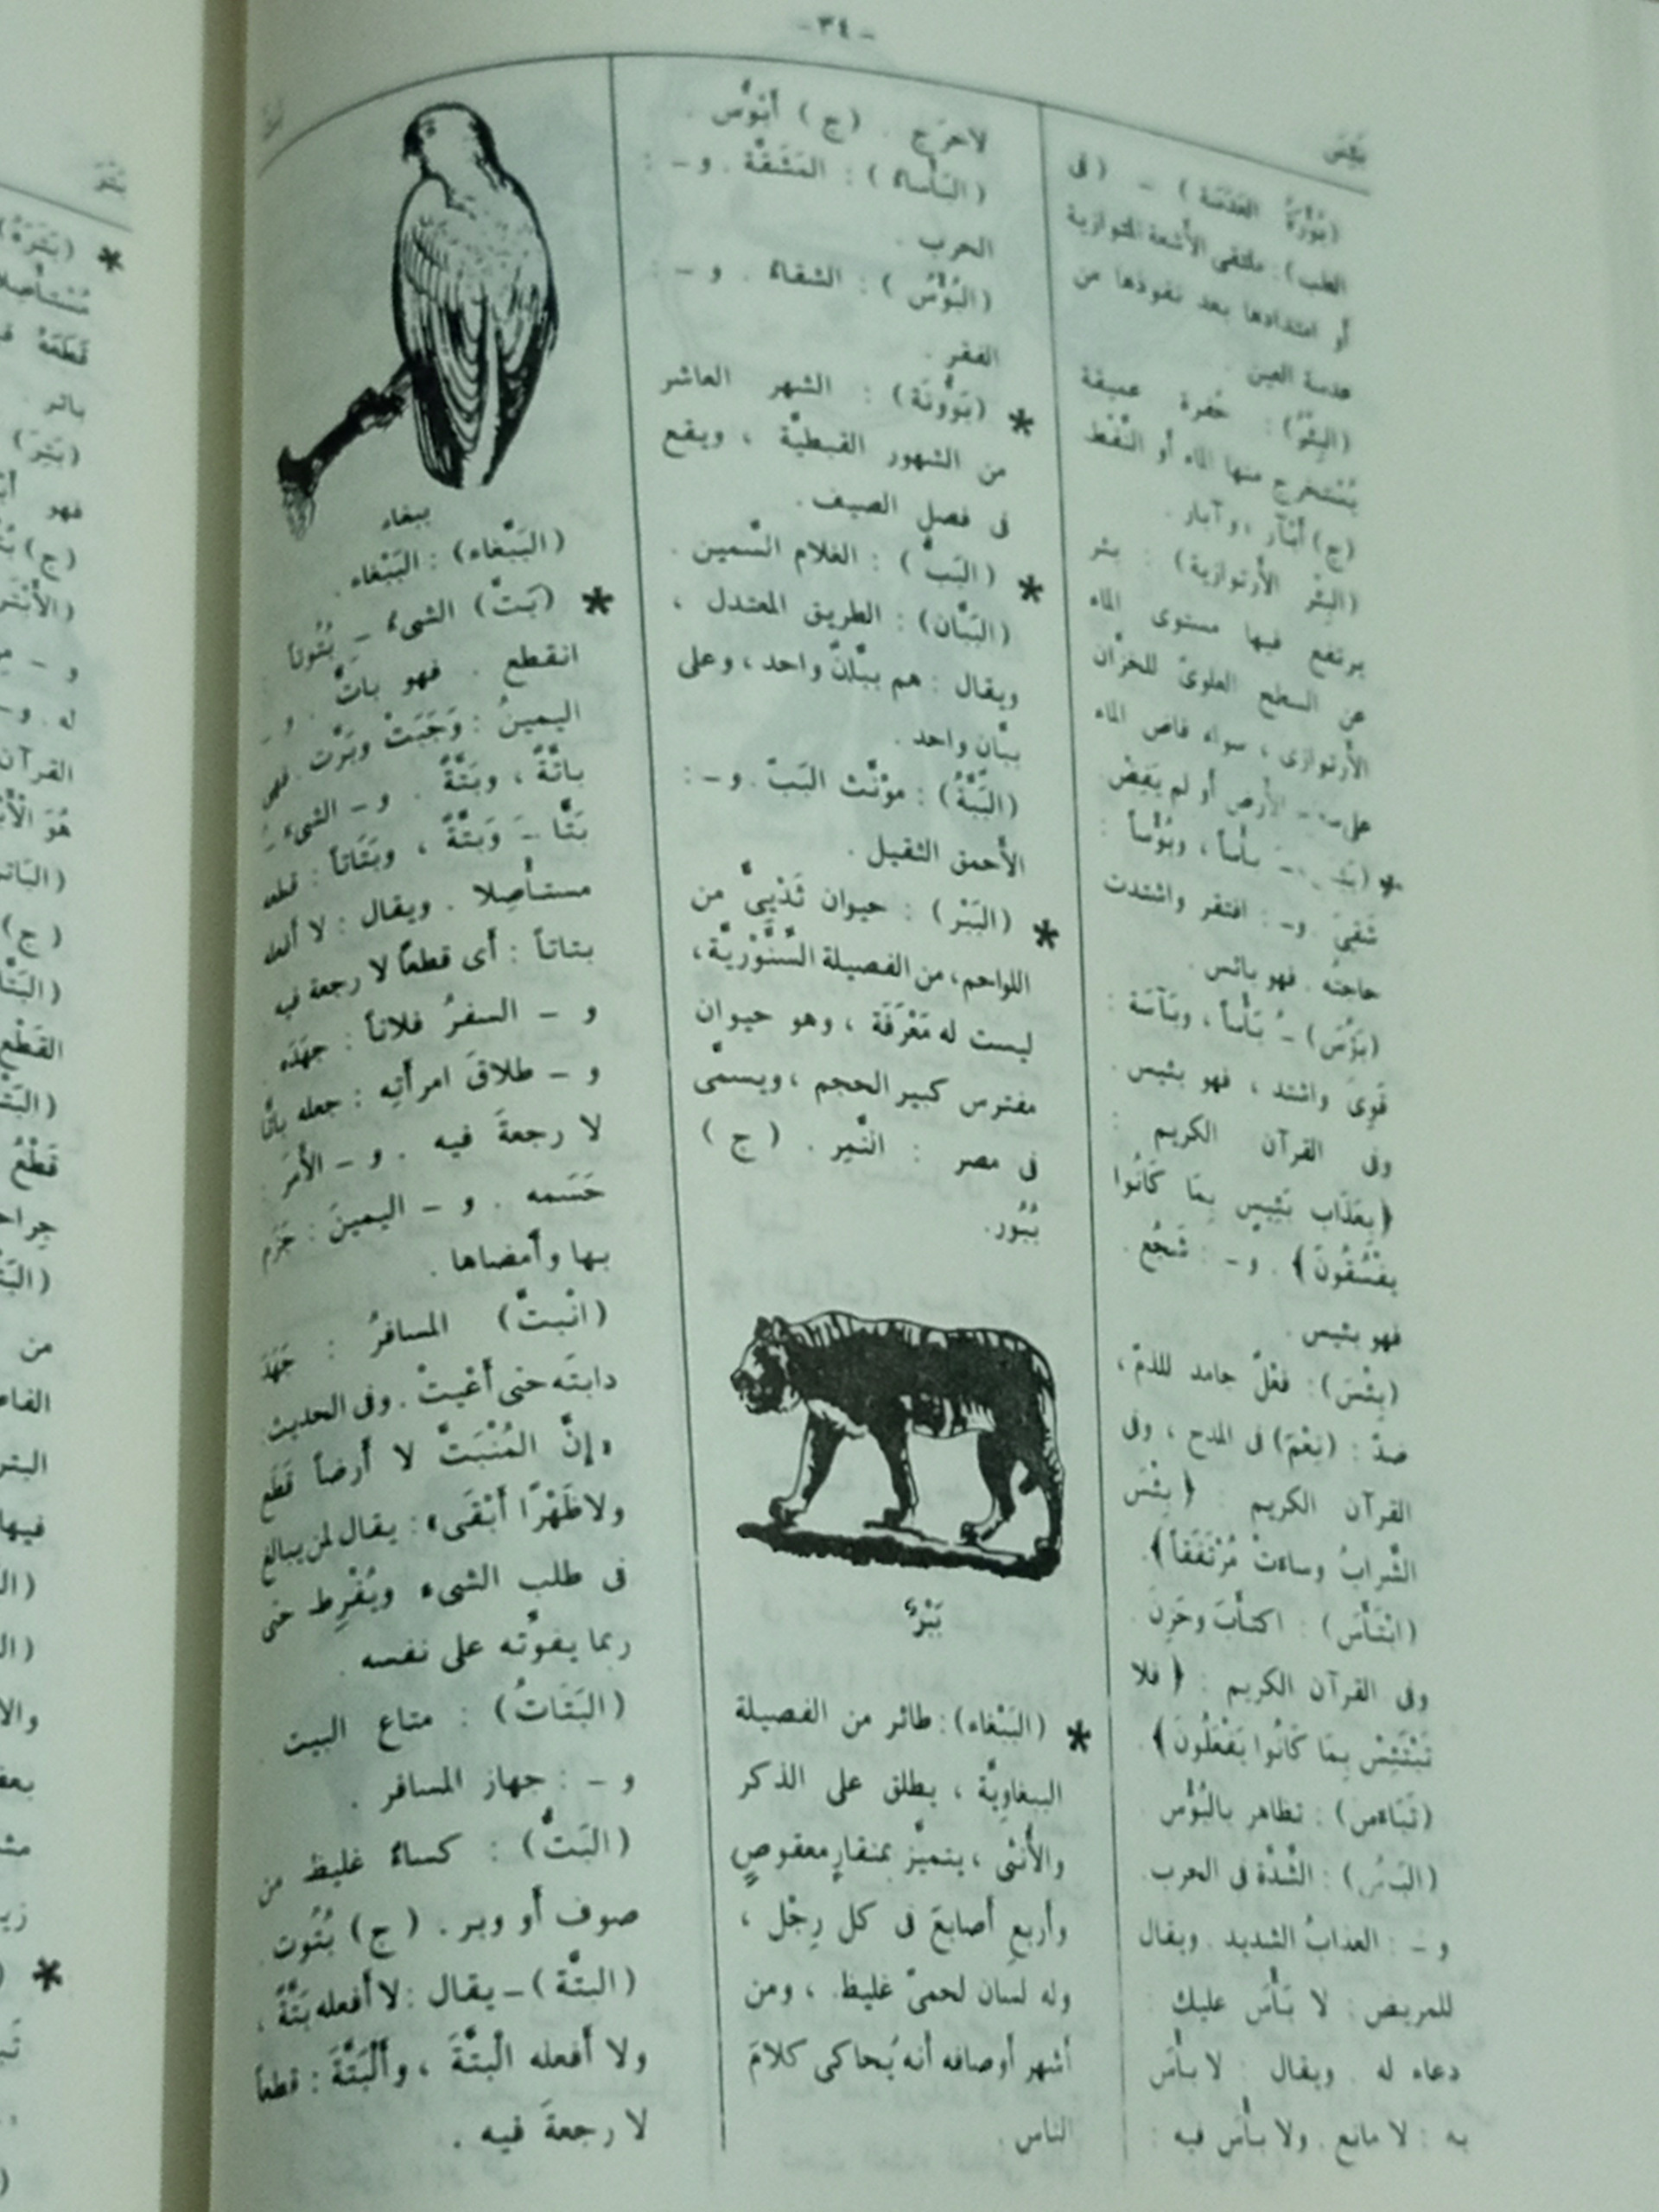 - ٣٤ -
بَئِسَ
(بُؤْرَةُ العَدَسَة) - (فى
الطب): ملتقى الأشعة المتوازية
أو امتدادها بعد نفوذها من
عدسة العين .
(البِئْرُ) : حُفرة عميقة
يُسْتخرج منها الماء أو النَّفْط
(ج) أَبْآر ، وآبار .
(البِئْر الأُرتوازية) : بئر
يرتفع فيها مستوى الماء
عن السطح العلوىّ للخزّان
الأُرتوازى ، سواء فاض الماء
على الأرض أو لم يَفِضْ
* بأْساً ، وبُؤْساً :
شَقِىَ . و- : افتقر واشتدت
حاجتُه . فهو بائس .
(بَؤُسَ) -ُ بَأْساً ، وبَآسَة :
قَوِىَ واشتد ، فهو بئيس .
وفى القرآن الكريم :
﴿بِعَذَابٍ بَئِيسٍ بِمَا كَانُوا
يَفْسُقُونَ﴾ . و- : شَجُعَ .
فهو بئيس .
(بِئْسَ) : فعْلٌ جامد للذمّ ،
ضدّ : (نِعْمَ) فى المدح ، وفى
القرآن الكريم : ﴿ بِئْسَ
الشَّرابُ وساءتْ مُرْتَفَقاً﴾.
(ابْتَأَسَ) : اكتأَبَ وحَزِنَ .
وفى القرآن الكريم : ﴿ فلا
تَبْتَئِسْ بِمَا كَانُوا يَفْعَلُونَ﴾.
(تَبَاءَسَ) : تظاهر بالبُؤْس .
(البَأْسُ) : الشِّدّة فى الحرب .
و - : العذابُ الشديد . ويقال
للمريض : لا بَأْسَ عليك :
دعاء له . ويقال : لا بأْسَ
به : لا مانع . ولا بأْسَ فيه :
لاحَرَج . (ج) أَبْؤُس .
(البَأْساءُ ) : المَشَقَّة . و - :
الحرب .
(البُؤْسُ ) : الشقاءُ . و - :
الفقر .
* (بَؤُونَة) : الشهر العاشر
من الشهور القبطيَّة ، ويقع
فى فصل الصيف .
* (البَبُّ ) : الغلام السَّمين .
(البَبَّان) : الطريق المعتدل ،
ويقال : هم ببَّانٌ واحد ، وعلى
ببَّان واحد .
(البَبَّةُ) : مؤنَّث البَبّ . و - :
الأحمق الثقيل .
* (البَبْر) : حيوان ثَدْيىٌّ من
اللواحم ، من الفصيلة السِّنَّوْريَّة ،
ليست له مَعْرَفَة ، وهو حيوان
مفترس كبير الحجم ، ويسمَّى
فى مصر : النَّمِر . ( ج )
بُبُور .
بَبْرٌ
* (البَبْغاء) : طائر من الفصيلة
الببغاوِيَّة ، يطلق على الذكر
والأُنثى ، يتميَّز بمنقارٍ معقوصٍ
وأربعِ أصابعَ فى كل رِجْل ،
وله لسان لحمىّ غليظ . ، ومن
أشهر أوصافه أنه يُحاكى كلامَ
الناس .
ببغاء
(البَبَّغاء) : البَبْغاء .
* (بَتَّ) الشىءُ - بُتُوتاً :
انقطع . فهو باتٌّ . و -
اليمينُ : وَجَبَتْ وبَرَّت . فهى
باتَّةٌ ، وبَتَّةٌ . و - الشىءَ
بَتًّا - وَبَتَّةً ، وبَتَاتاً : قطعه
مستأْصِلا . ويقال : لا أفعله
بتاتاً : أى قطعاً لا رجعة فيه
و - السفرُ فلاناً : جهَدَه .
و - طلاقَ امرأَتِه : جعله باتًّا
لا رجعةَ فيه . و - الأَمرَ :
حَسَمه . و - اليمينَ : جَزَم
بها وأَمضاها .
(انْبتَّ) المسافرُ : جَهَدَ
دابتَه حتى أَعْيتْ . وفى الحديث
«إنَّ المُنْبَتَّ لا أَرضاً قَطَع
ولاظَهْرًا أَبْقَى» : يقال لمن يبالغ
فى طلب الشىء ويُفْرِط حتى
ربما يفوِّته على نفسه .
(البَتَاتُ) : متاع البيت .
و - : جهاز المسافر .
(البَتُّ) : كساءٌ غليظ من
صوف أو وبر . ( ج ) بُتُوت .
(البتَّة) - يقال : لا أفعله بَتَّةً ،
ولا أفعله الْبتَّةَ ، وأَلْبَتَّةَ : قطعاً
لا رجعةَ فيه .